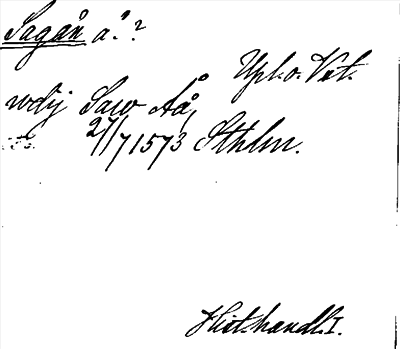 Sagån å.?
Upl. o. Vstl.
wdij Saw Åå,
27/7 1573 Sthlm.
Hist. handl. I.